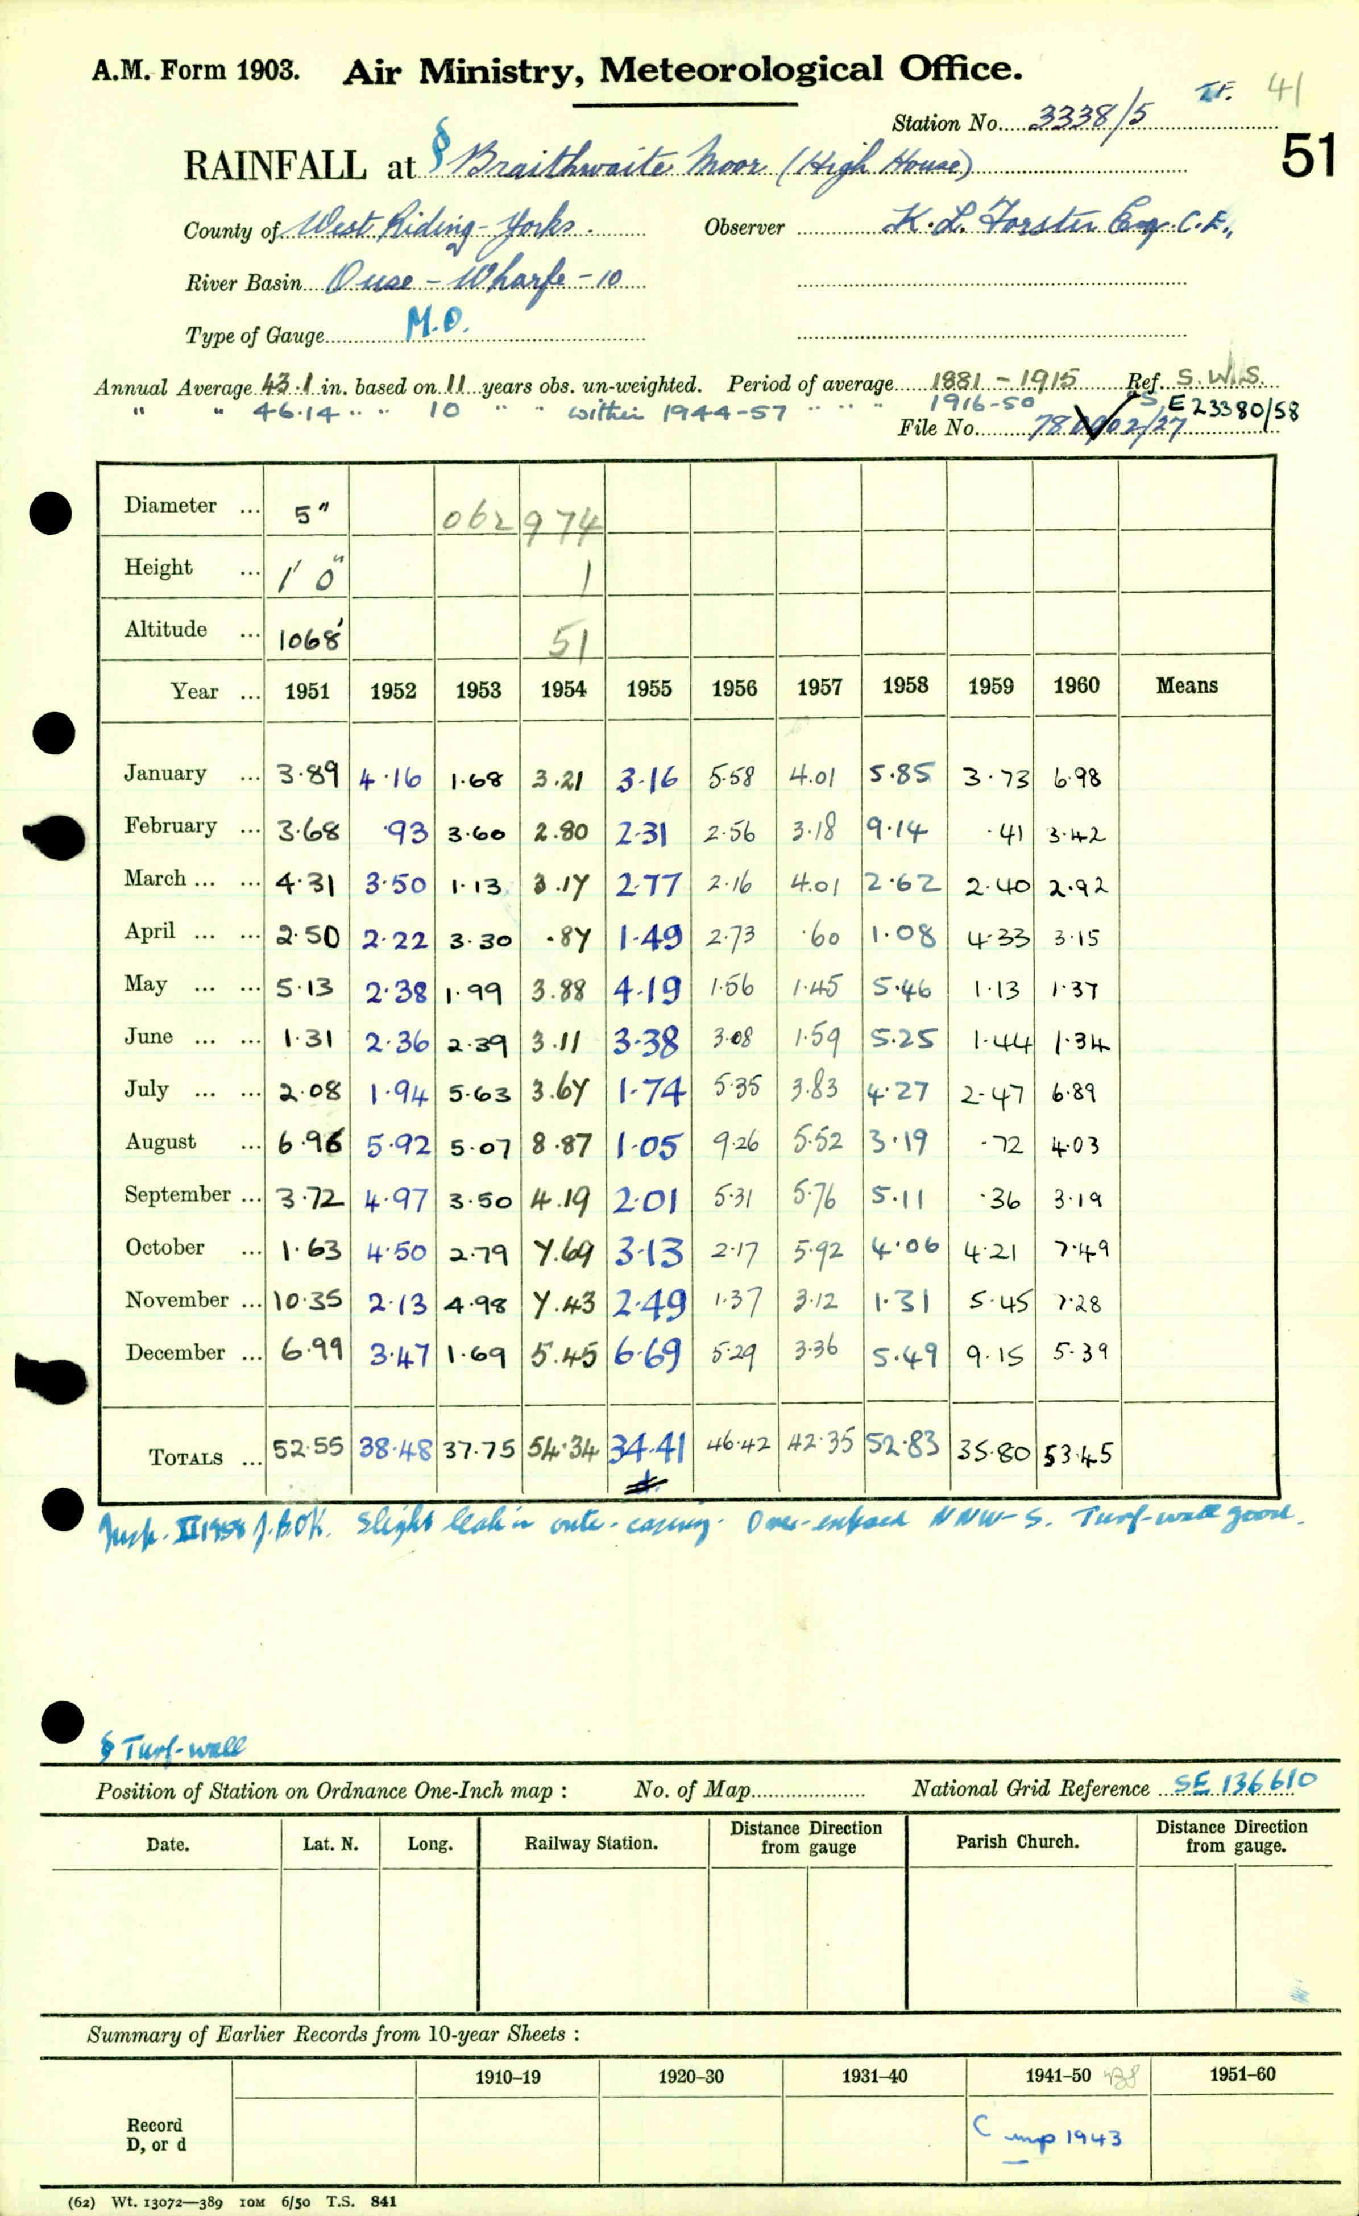 A.M. Form 1903. Air Ministry, Meteorological Office.
41
Station No. 3338/5
51
RAINFALL at § Braithwaite Moor (High House)
County of West Riding - Yorks. Observer K. L. Forster Esq. C.E.,
River Basin Ouse - Wharfe - 10
Type of Gauge M.O.
Annual Average 43.1 in. based on 11 years obs. un-weighted. Period of average 1881 - 1915 Ref. S.W.S.
" " 46.14 " " 10 " " within 1944-57 " " " 1916-50 " S, E 23380/58
File No. 780002/27
Diameter ... 5" 062 974
Height ... 1' 0" 1
Altitude ... 1068' 51
Year ... 1951 1952 1953 1954 1955 1956 1957 1958 1959 1960 Means
January ... 3.89 4.16 1.68 3.21 3.16 5.58 4.01 5.85 3.73 6.98
February ... 3.68 .93 3.60 2.80 2.31 2.56 3.18 9.14 .41 3.42
March ... ... 4.31 3.50 1.13 3.17 2.77 2.16 4.01 2.62 2.40 2.92
April ... ... 2.50 2.22 3.30 .87 1.49 2.73 .60 1.08 4.33 3.15
May ... ... 5.13 2.38 1.99 3.88 4.19 1.56 1.45 5.46 1.13 1.37
June ... ... 1.31 2.36 2.39 3.11 3.38 3.08 1.59 5.25 1.44 1.34
July ... ... 2.08 1.94 5.63 3.67 1.74 5.35 3.83 4.27 2.47 6.89
August ... 6.96 5.92 5.07 8.87 1.05 9.26 5.52 3.19 .72 4.03
September ... 3.72 4.97 3.50 4.19 2.01 5.31 5.76 5.11 .36 3.19
October ... 1.63 4.50 2.79 7.69 3.13 2.17 5.92 4.06 4.21 7.49
November ... 10.35 2.13 4.98 7.43 2.49 1.37 3.12 1.31 5.45 7.28
December ... 6.99 3.47 1.69 5.45 6.69 5.29 3.36 5.49 9.15 5.39
TOTALS ... 52.55 38.48 37.75 54.34 34.41 46.42 42.35 52.83 35.80 53.45
Insp. 1958 Slight leak in outer-casing. Over-exposed NNW-S. Turf-wall good.
§ Turf-wall
Position of Station on Ordnance One-Inch map : No. of Map National Grid Reference SE 136610
Date. Lat. N. Long. Railway Station. Distance Direction from gauge Parish Church. Distance Direction from gauge.
Summary of Earlier Records from 10-year Sheets :
1910–19 1920–30 1931–40 1941–50 1951–60
Record
D, or d
C 1943
(62) Wt. 13072—389 10M 6/50 T.S. 841